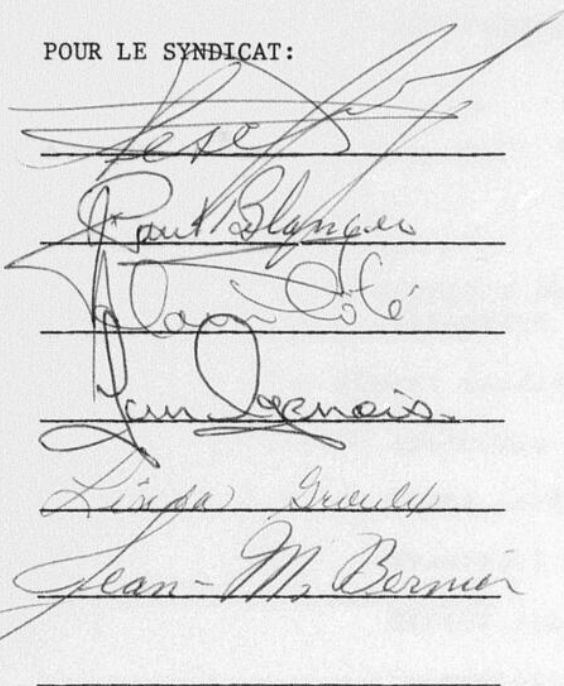 POUR LE SYNDICAT:
Paul Blanger
Alain Côté
Jean Langlois
Linda Groulx
Jean-M. Bernier